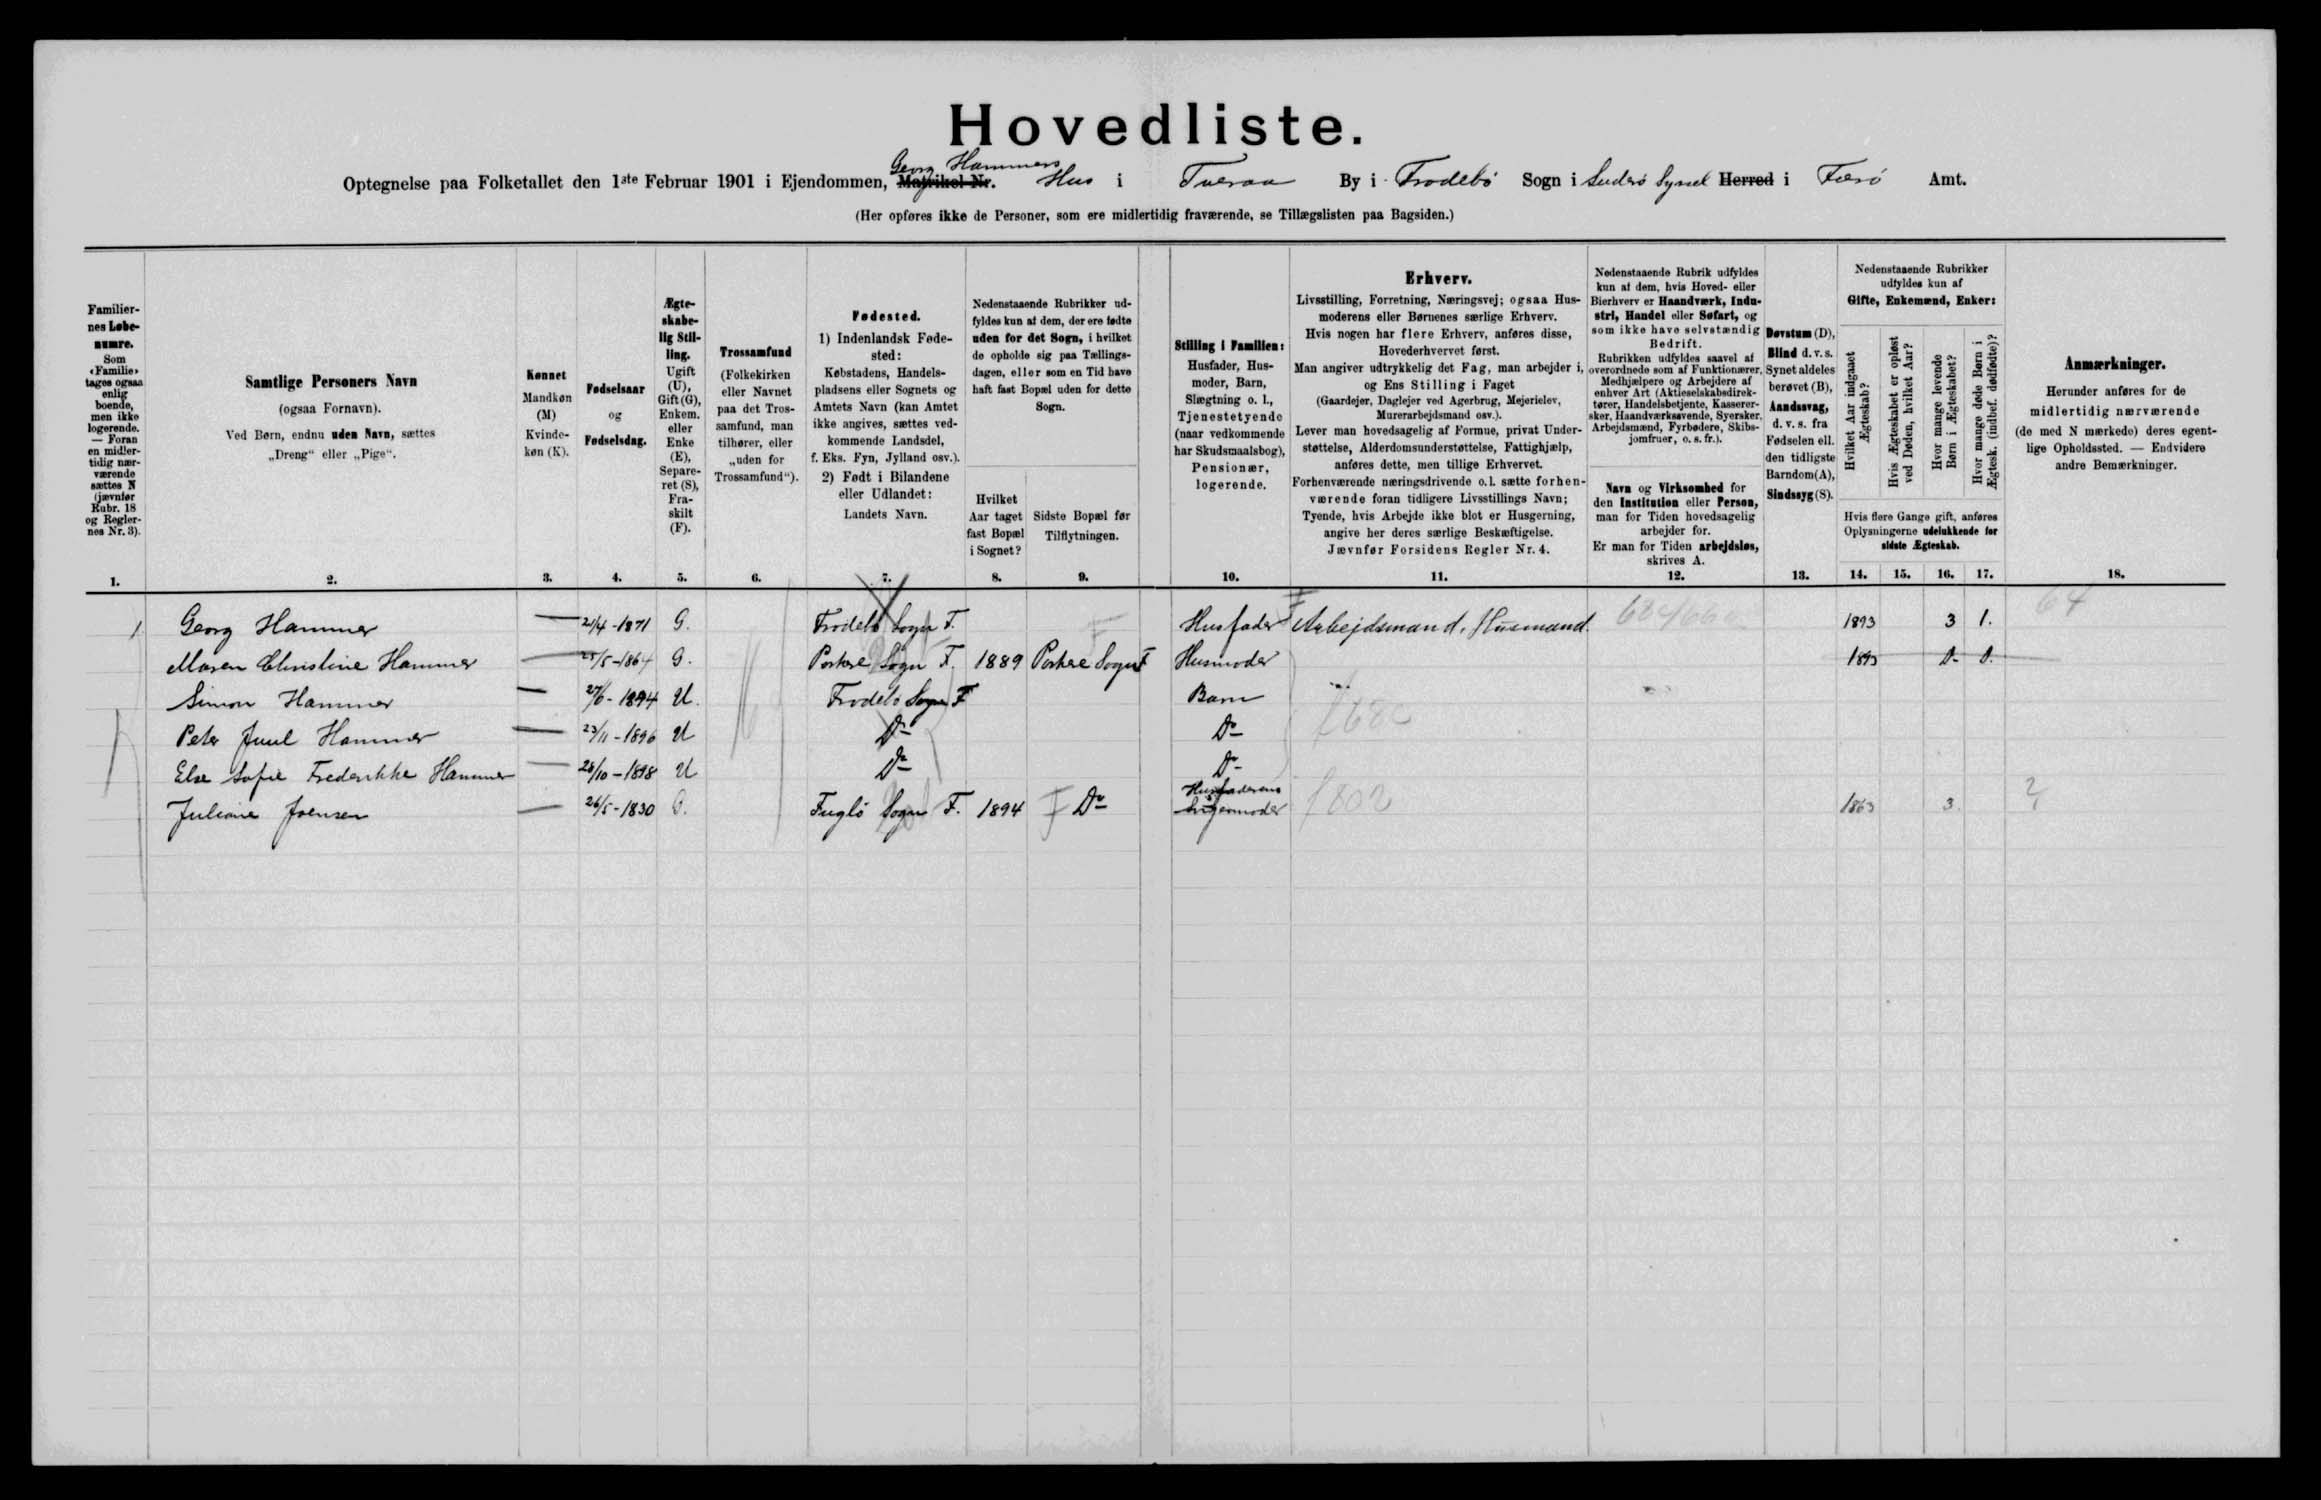 Hovedliste.
Georg Hammers
Optegnelse paa Folketallet den 1ste Februar 1901 i Ejendommen, Matrikel Nr. Hus i Tveraa By i Frodebø Sogn i Suderø Syssel Herred i Færø Amt.
(Her opføres ikke de Personer, som ere midlertidig fraværende, se Tillægslisten paa Bagsiden.)
Familier-
nes Løbe-
numre.
Som
«Familie»
tages ogsaa
enlig
boende,
men ikke
logerende.
— Foran
en midler-
tidig nær-
værende
sættes N
(jævnfør
Rubr. 18
og Regler-
nes Nr. 3).
1.
Samtlige Personers Navn
(ogsaa Fornavn).
Ved Børn, endnu uden Navn, sættes
„Dreng“ eller „Pige“.
2.
Kønnet
Mandkøn
(M)
Kvinde-
køn (K).
3.
Fødselsaar
og
Fødselsdag.
4.
Ægte-
skabe-
lig Stil-
ling.
Ugift
(U),
Gift (G),
Enkem.
eller
Enke
(E),
Separe-
ret (S),
Fra-
skilt
(F).
5.
Trossamfund
(Folkekirken
eller Navnet
paa det Tros-
samfund, man
tilhører, eller
„uden for
Trossamfund“).
6.
Fødested.
1) Indenlandsk Føde-
sted:
Købstadens, Handels-
pladsens eller Sognets og
Amtets Navn (kan Amtet
ikke angives, sættes ved-
kommende Landsdel,
f. Eks. Fyn, Jylland osv.).
2) Født i Bilandene
eller Udlandet:
Landets Navn.
7.
Nedenstaaende Rubrikker ud-
fyldes kun af dem, der ere fødte
uden for det Sogn, i hvilket
de opholde sig paa Tællings-
dagen, eller som en Tid have
haft fast Bopæl uden for dette
Sogn.
Hvilket
Aar taget
fast Bopæl
i Sognet?
8.
Sidste Bopæl før
Tilflytningen.
9.
Stilling i Familien:
Husfader, Hus-
moder, Barn,
Slægtning o. l.,
Tjenestetyende
(naar vedkommende
har Skudsmaalsbog),
Pensionær,
logerende.
10.
Erhverv.
Livsstilling, Forretning, Næringsvej; ogsaa Hus-
moderens eller Børnenes særlige Erhverv.
Hvis nogen har flere Erhverv, anføres disse,
Hovederhvervet først.
Man angiver udtrykkelig det Fag, man arbejder i,
og Ens Stilling i Faget
(Gaardejer, Daglejer ved Agerbrug, Mejerielev,
Murerarbejdsmand osv.).
Lever man hovedsagelig af Formue, privat Under-
støttelse, Alderdomsunderstøttelse, Fattighjælp,
anføres dette, men tillige Erhvervet.
Forhenværende næringsdrivende o.l. sætte forhen-
værende foran tidligere Livsstillings Navn;
Tyende, hvis Arbejde ikke blot er Husgerning,
angive her deres særlige Beskæftigelse.
Jævnfør Forsidens Regler Nr. 4.
11.
Nedenstaaende Rubrik udfyldes
kun af dem, hvis Hoved- eller
Bierhverv er Haandværk, Indu-
stri, Handel eller Søfart, og
som ikke have selvstændig
Bedrift.
Rubrikken udfyldes saavel af
overordnede som af Funktionærer,
Medhjælpere og Arbejdere af
enhver Art (Aktieselskabsdirek-
tører, Handelsbetjente, Kasserer-
sker, Haandværkssvende, Syersker,
Arbejdsmænd, Fyrbødere, Skibs-
jomfruer, o. s. fr.).
Navn og Virksomhed for
den Institution eller Person,
man for Tiden hovedsagelig
arbejder for.
Er man for Tiden arbejdsløs,
skrives A.
12.
Døvstum (D),
Blind d. v. s.
Synet aldeles
berøvet (B),
Aandssvag,
d. v. s. fra
Fødselen ell.
den tidligste
Barndom(A),
Sindssyg (S).
13.
Nedenstaaende Rubrikker
udfyldes kun af
Gifte, Enkemænd, Enker:
Hvilket Aar indgaaet
Ægteskab?
Hvis Ægteskabet er opløst
ved Døden, hvilket Aar?
Hvor mange levende
Børn i Ægteskabet?
Hvor mange døde Børn i
Ægtesk. (indbef. dødfødte)?
Hvis flere Gange gift, anføres
Oplysningerne udelukkende for
sidste Ægteskab.
14. 15. 16. 17.
Anmærkninger.
Herunder anføres for de
midlertidig nærværende
(de med N mærkede) deres egent-
lige Opholdssted. — Endvidere
andre Bemærkninger.
18.
1 Georg Hammer — 21/4-1871 G. Frodebø Sogn F. Husfader Arbejdsmand, Husmand. 1893 3 1. 64
Maren Christine Hammer — 25/5-1864 G. Porkere Sogn F. 1889 Porkere Sogn F Husmoder 1893 D- D.
Simon Hammer — 27/6-1894 U. Frodebø Sogn F Barn
Peter Juul Hammer — 23/11-1896 U Do Do
Else Sofie Frederikke Hammer — 28/10-1898 U Do Do
Juliane Joensen — 26/5-1830 Fuglø Sogn F. 1894 Do Husfaderens Svigermoder 1802 1863 3.